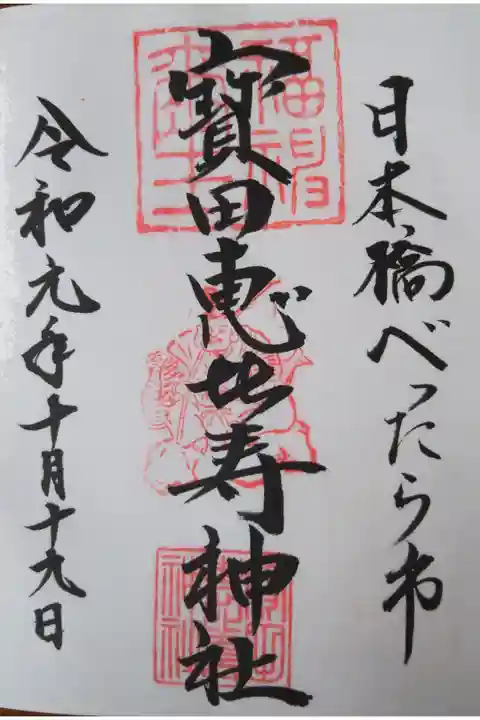 日本橋べったら市
寳田恵比寿神社
令和元年十月十九日